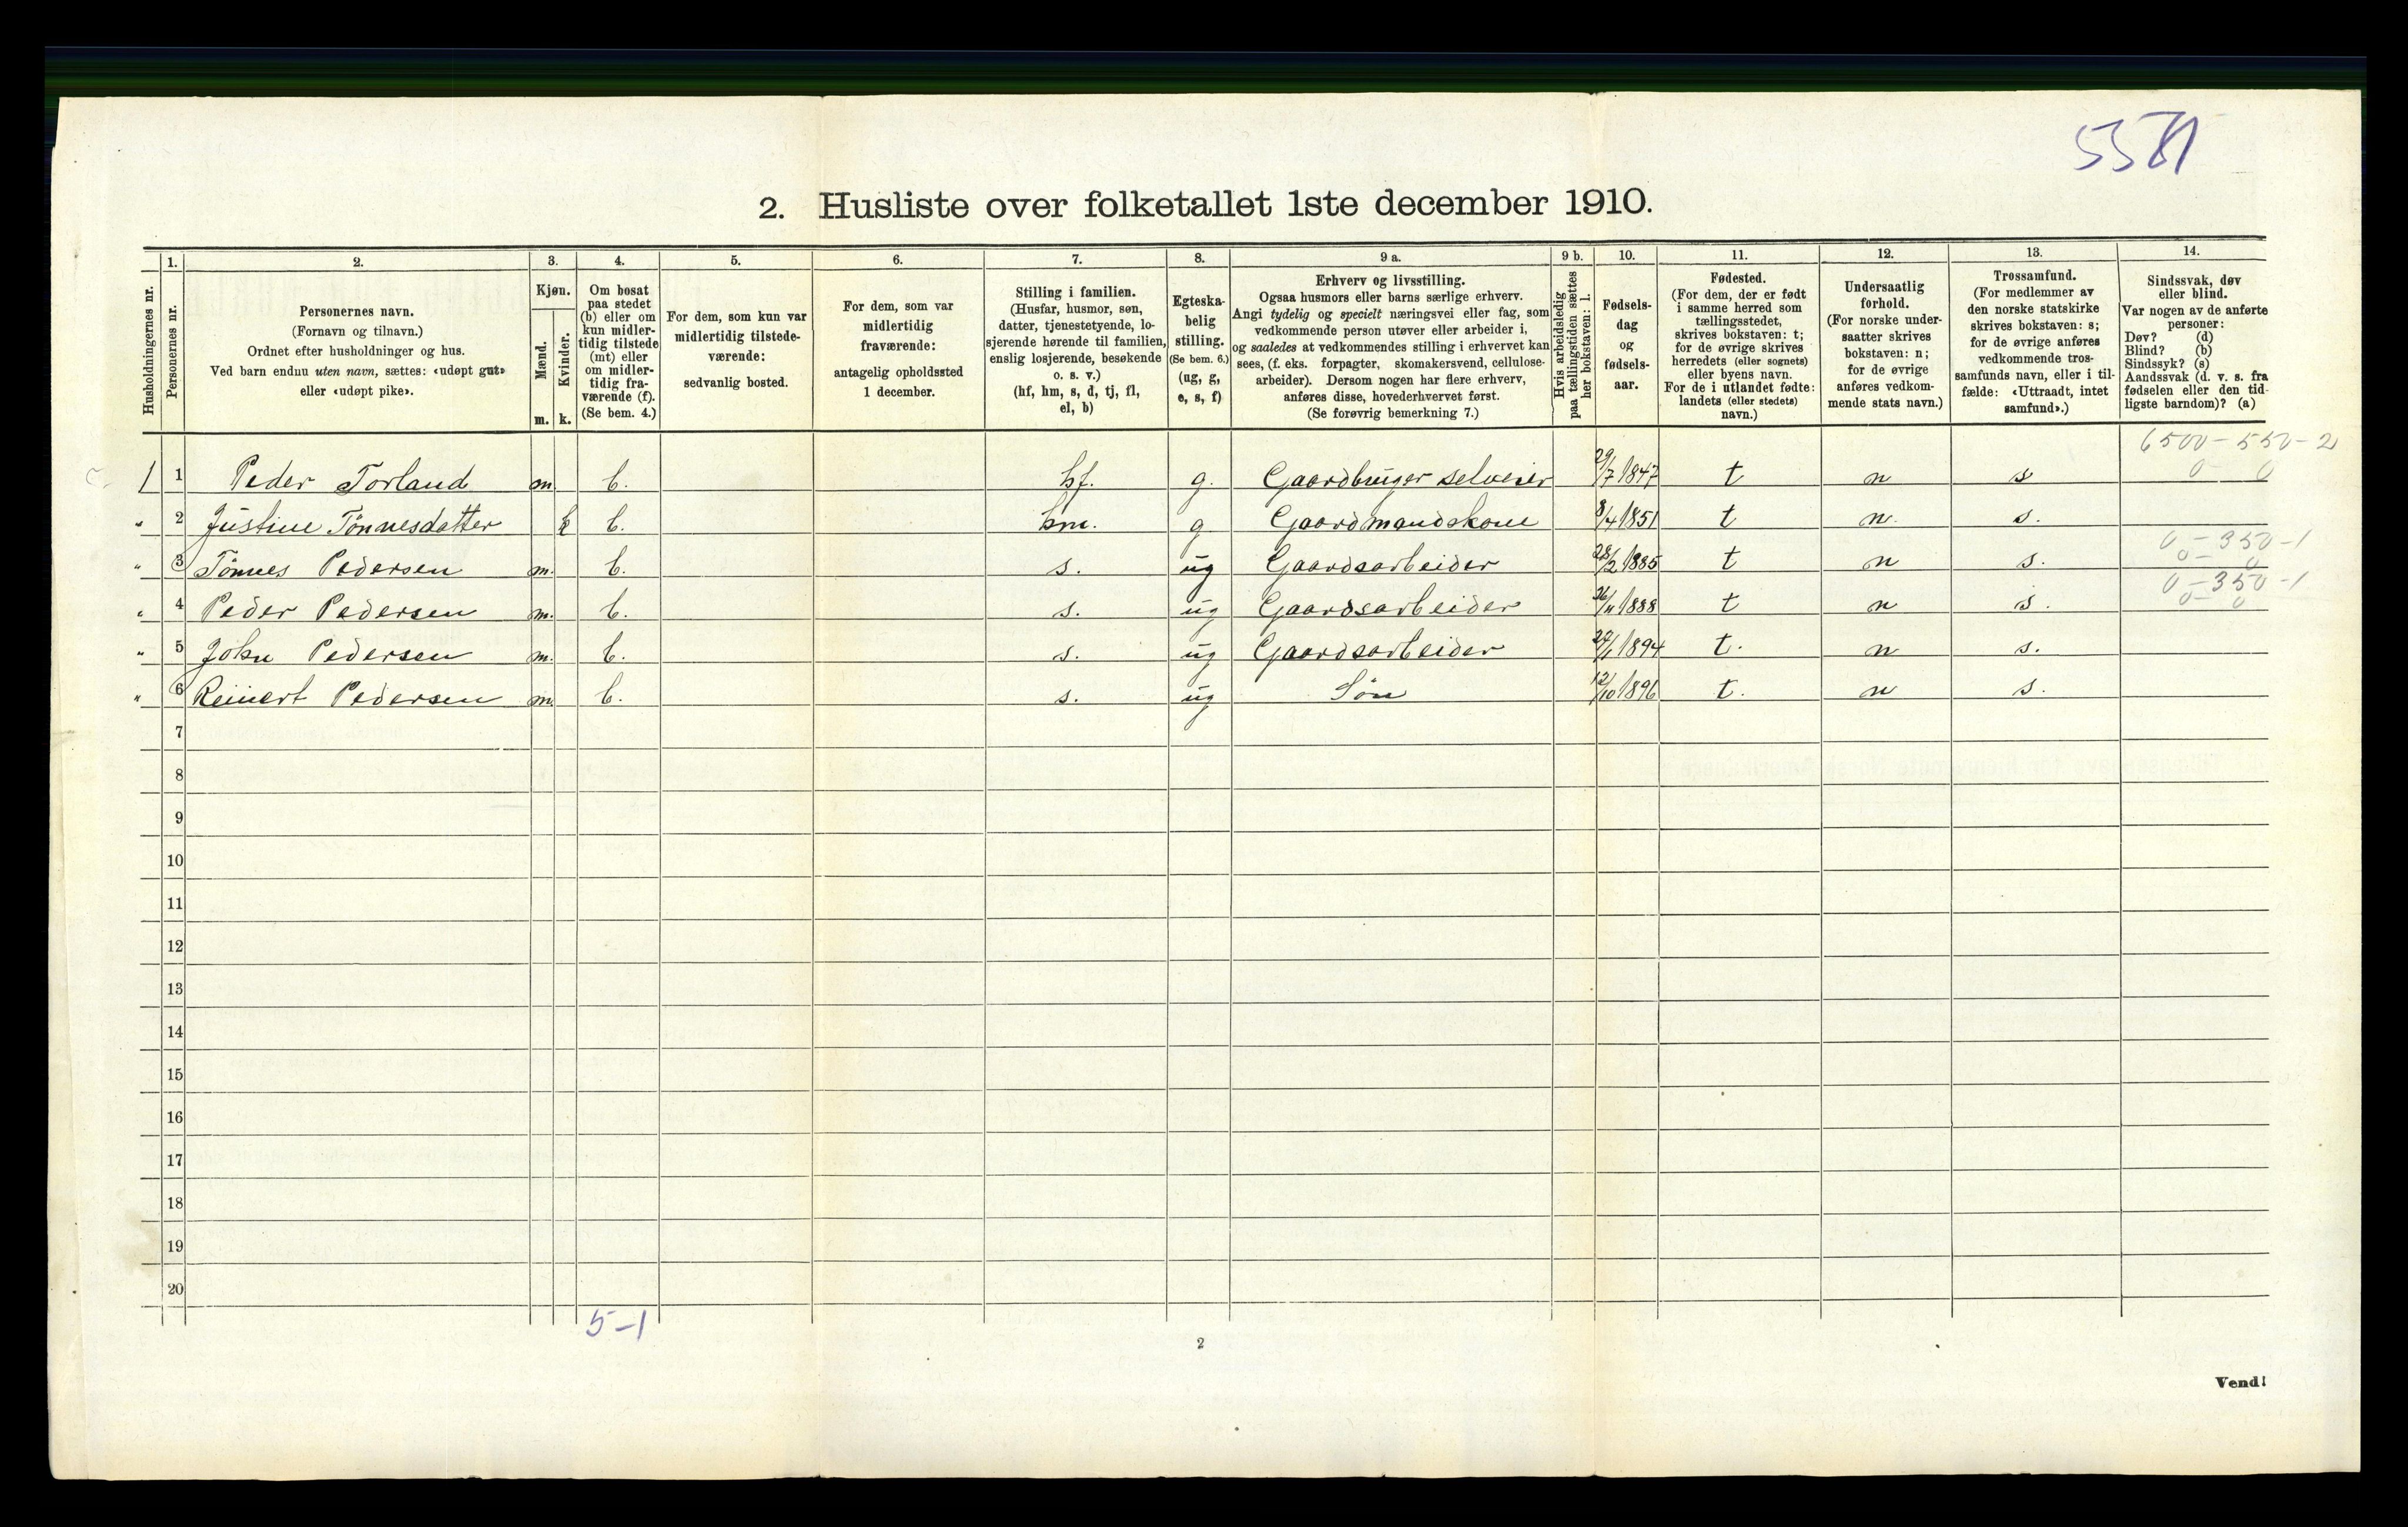 5581
2. Husliste over folketallet 1ste december 1910.
Husholdningernes nr.
1. Personernes nr.
2. Personernes navn.
(Fornavn og tilnavn.)
Ordnet efter husholdninger og hus.
Ved barn endnu uten navn, sættes: «udøpt gut»
eller «udøpt pike».
3. Kjøn.
Mænd. m.
Kvinder. k.
4. Om bosat
paa stedet
(b) eller om
kun midler-
tidig tilstede
(mt) eller
om midler-
tidig fra-
værende (f).
(Se bem. 4.)
5. For dem, som kun var
midlertidig tilstede-
værende:
sedvanlig bosted.
6. For dem, som var
midlertidig
fraværende:
antagelig opholdssted
1 december.
7. Stilling i familien.
(Husfar, husmor, søn,
datter, tjenestetyende, lo-
sjerende hørende til familien,
enslig losjerende, besøkende
o. s. v.)
(hf, hm, s, d, tj, fl,
el, b)
8. Egteska-
belig
stilling.
(Se bem. 6.)
(ug, g,
e, s, f)
9 a. Erhverv og livsstilling.
Ogsaa husmors eller barns særlige erhverv.
Angi tydelig og specielt næringsvei eller fag, som
vedkommende person utøver eller arbeider i,
og saaledes at vedkommendes stilling i erhvervet kan
sees, (f. eks. forpagter, skomakersvend, cellulose-
arbeider). Dersom nogen har flere erhverv,
anføres disse, hovederhvervet først.
(Se forøvrig bemerkning 7.)
9 b. Hvis arbeidsledig
paa tællingstiden sættes
her bokstaven: l.
10. Fødsels-
dag
og
fødsels-
aar.
11. Fødested.
(For dem, der er født
i samme herred som
tællingsstedet,
skrives bokstaven: t;
for de øvrige skrives
herredets (eller sognets)
eller byens navn.
For de i utlandet fødte:
landets (eller stedets)
navn.)
12. Undersaatlig
forhold.
(For norske under-
saatter skrives
bokstaven: n;
for de øvrige
anføres vedkom-
mende stats navn.)
13. Trossamfund.
(For medlemmer av
den norske statskirke
skrives bokstaven: s;
for de øvrige anføres
vedkommende tros-
samfunds navn, eller i til-
fælde: «Uttraadt, intet
samfund».)
14. Sindssvak, døv
eller blind.
Var nogen av de anførte
personer:
Døv? (d)
Blind? (b)
Sindssyk? (s)
Aandssvak (d. v. s. fra
fødselen eller den tid-
ligste barndom)? (a)
6500-550-2
0-0
1 1 Peder Torland m. b. hf. g. Gaardbruger selveier 29/7 1847 t n s
" 2 Justine Tönnesdatter k b. hm. g Gaardmandskone 8/4 1851 t n. s.
0-350-1
0-0
" 3 Tönnes Pedersen m. b. s. ug Gaardsarbeider 28/2 1885 t n s.
0-350-1
0-0
" 4 Peder Pedersen m. b. s. ug Gaardsarbeider 26/11 1888 t n s.
" 5 John Pedersen m. b. s. ug Gaardsarbeider 1894 t. n s.
" 6 Reinert Pedersen m. b. s. ug Sön 12/10 1896 t. n s.
7
8
9
10
11
12
13
14
15
16
17
18
19
20
5-1
2
Vend!